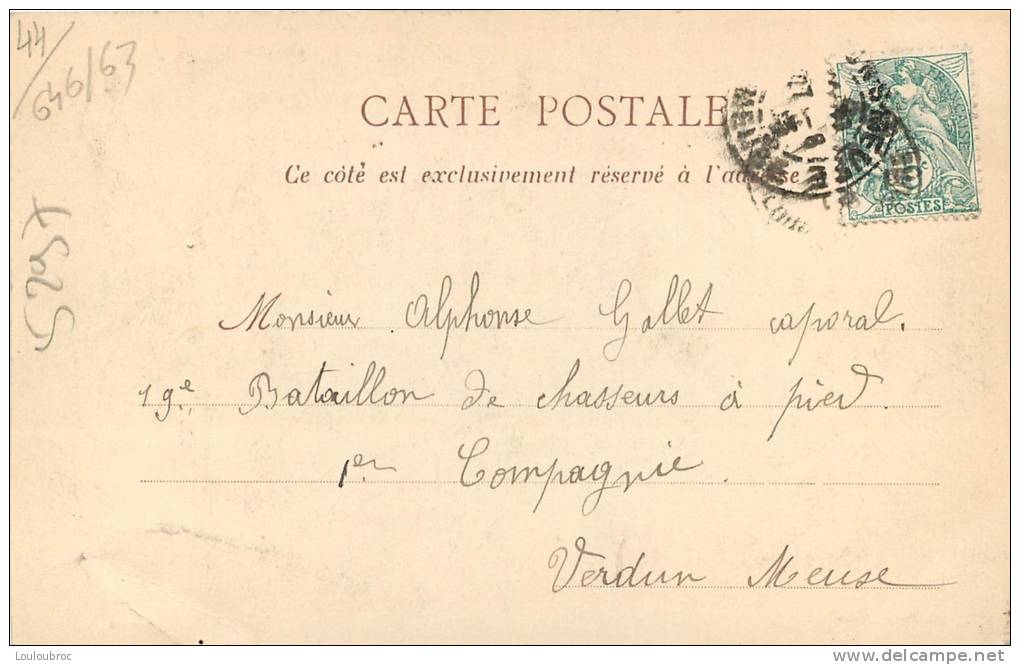 44/
646/63
5257
CARTE POSTALE
Ce côté est exclusivement réservé à l'adresse
POSTES
Monsieur Alphonse Gallet caporal.
19e Bataillon de chasseurs à pied.
1er Compagnie
Verdun Meuse
Louloubroc
www.delcampe.net